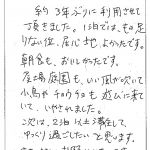 約3年ぶりに利用させて
頂きました。1泊では、もの足
りない位、居心地、よかったです。
朝食も、おいしかったです。
庭園も、いい風が吹いて
小鳥やチョウチョも遊びに来て
いて、いやされました。
次は、2泊以上滞在して
ゆっくり過ごしたいと思います。